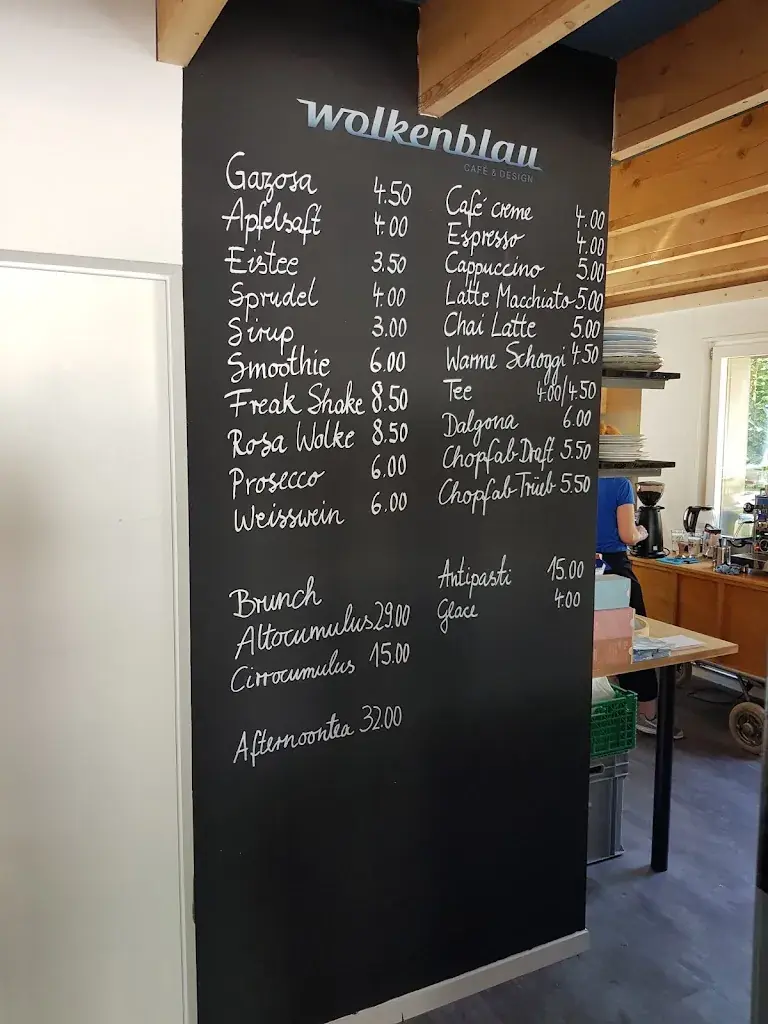 wolkenblau
CAFÉ & DESIGN
Gazosa 4.50
Apfelsaft 4.00
Eistee 3.50
Sprudel 4.00
Sirup 3.00
Smoothie 6.00
Freak Shake 8.50
Rosa Wolke 8.50
Prosecco 6.00
Weisswein 6.00
Brunch
Altocumulus 29.00
Cirrocumulus 15.00
Afternoontea 32.00
Café creme 4.00
Espresso 4.00
Cappuccino 5.00
Latte Macchiato 5.00
Chai Latte 5.00
Warme Schoggi 4.50
Tee 4.00/4.50
Dalgona 6.00
Chopfab Draft 5.50
Chopfab Trüeb 5.50
Antipasti 15.00
Glace 4.00